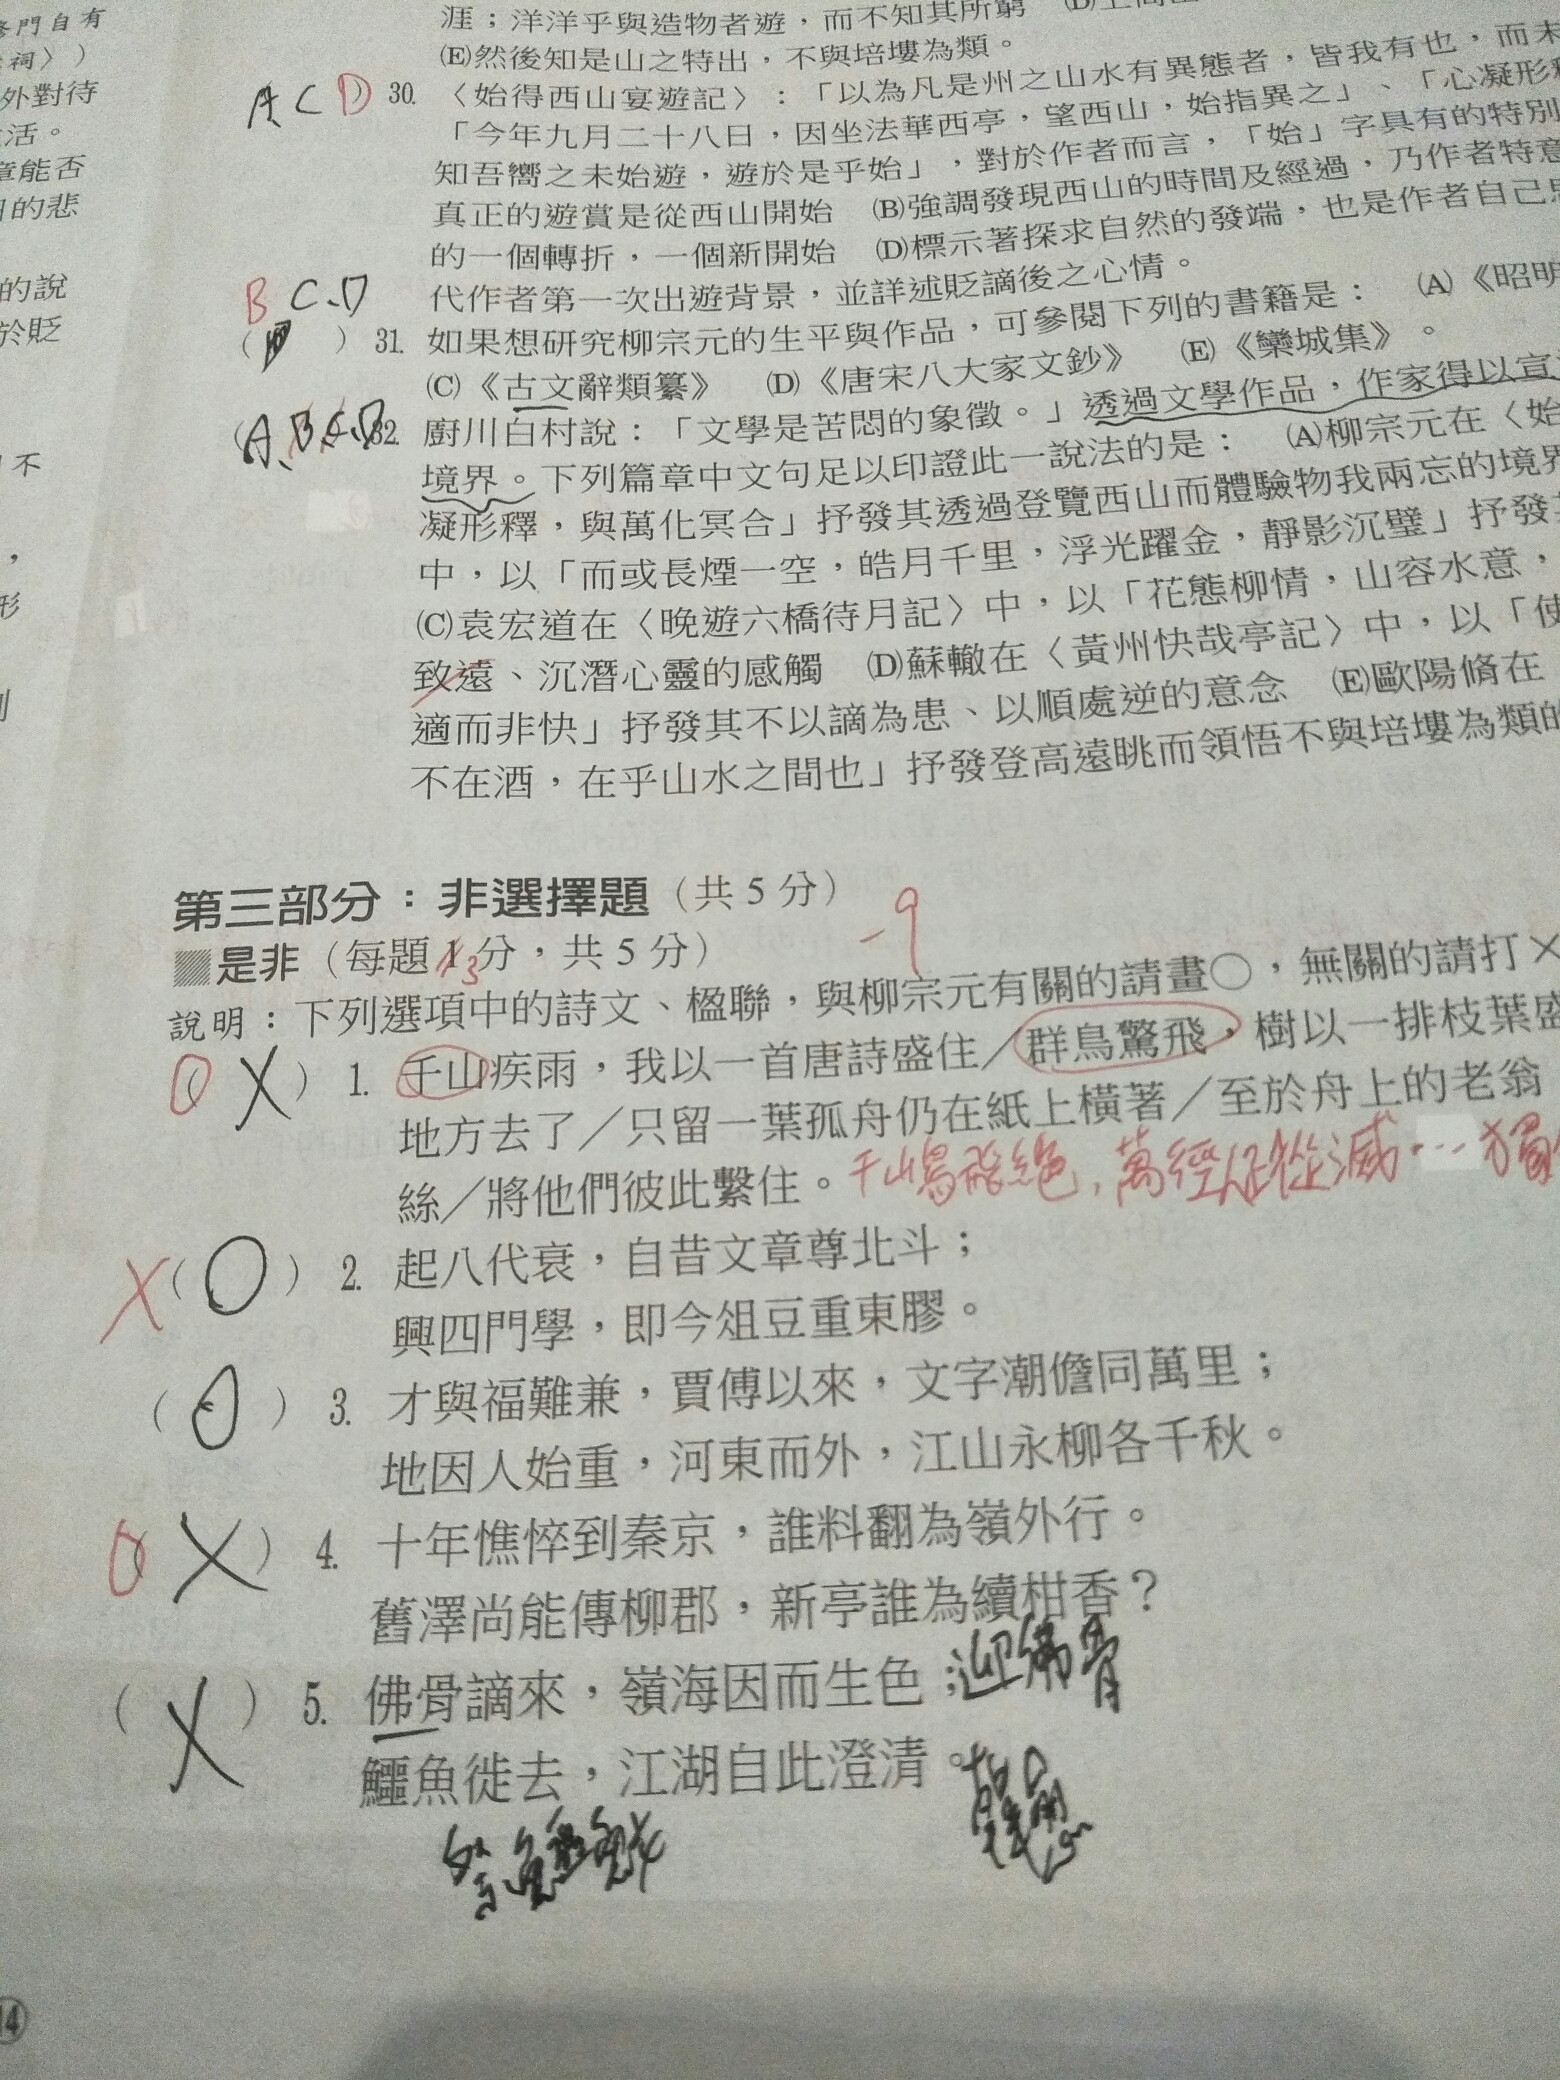 修門自有
涯；洋洋乎與造物者遊，而不知其所窮
祠〉）
(E)然後知是山之特出，不與培塿為類。
外對待
活。
章能否
的悲
的說
於貶
不
，
形
A C D 30. 〈始得西山宴遊記〉：「以為凡是州之山水有異態者，皆我有也，而未
「今年九月二十八日，因坐法華西亭，望西山，始指異之」、「心凝形釋
知吾嚮之未始遊，遊於是乎始」，對於作者而言，「始」字具有的特別
真正的遊賞是從西山開始 (B)強調發現西山的時間及經過，乃作者特意
的一個轉折，一個新開始 (D)標示著探求自然的發端，也是作者自己
代作者第一次出遊背景，並詳述貶謫後之心情。
B C、D
( ) 31. 如果想研究柳宗元的生平與作品，可參閱下列的書籍是： (A)《昭明
(C)《古文辭類纂》 (D)《唐宋八大家文鈔》 (E)《欒城集》。
(A、B、C、D 32. 廚川白村說：「文學是苦悶的象徵。」透過文學作品，作家得以宣
境界。下列篇章中文句足以印證此一說法的是： (A)柳宗元在〈始
凝形釋，與萬化冥合」抒發其透過登覽西山而體驗物我兩忘的境界
中，以「而或長煙一空，皓月千里，浮光躍金，靜影沉璧」抒發
(C)袁宏道在〈晚遊六橋待月記〉中，以「花態柳情，山容水意，
致遠、沉潛心靈的感觸 (D)蘇轍在〈黃州快哉亭記〉中，以「使
適而非快」抒發其不以謫為患、以順處逆的意念 (E)歐陽脩在
不在酒，在乎山水之間也」抒發登高遠眺而領悟不與培塿為類的
第三部分：非選擇題（共 5 分）
-9
是非（每題 1 3 分，共 5 分）
說明：下列選項中的詩文、楹聯，與柳宗元有關的請畫○，無關的請打×
O X ） 1. 千山疾雨，我以一首唐詩盛住／群鳥驚飛，樹以一排枝葉盛
地方去了／只留一葉孤舟仍在紙上橫著／至於舟上的老翁
絲／將他們彼此繫住。千山鳥飛絕，萬徑人蹤滅…獨
X（ O ） 2. 起八代衰，自昔文章尊北斗；
興四門學，即今俎豆重東膠。
（ O ） 3. 才與福難兼，賈傅以來，文字潮儋同萬里；
地因人始重，河東而外，江山永柳各千秋。
O X ） 4. 十年憔悴到秦京，誰料翻為嶺外行。
舊澤尚能傳柳郡，新亭誰為續柑香？
（ X ） 5. 佛骨謫來，嶺海因而生色；迎佛骨
鱷魚徙去，江湖自此澄清。韓愈
祭鱷魚
14